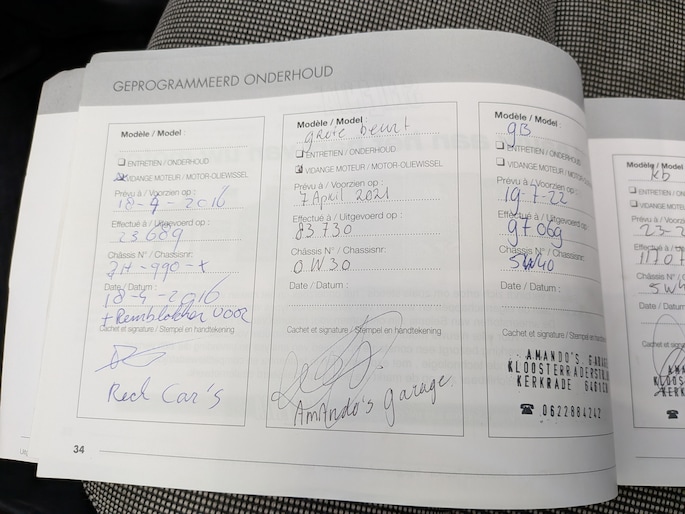 GEPROGRAMMEERD ONDERHOUD
Modèle / Model :
ENTRETIEN / ONDERHOUD
VIDANGE MOTEUR / MOTOR-OLIEWISSEL
Prévu à / Voorzien op :
18-4-2016
Effectué à / Uitgevoerd op :
23689
Châssis N° / Chassisnr:
2H-990-X
Date / Datum :
18-4-2016
+Remblokken voor
Cachet et signature / Stempel en handtekening
Red Car's
Modèle / Model :
grote beurt
ENTRETIEN / ONDERHOUD
VIDANGE MOTEUR / MOTOR-OLIEWISSEL
Prévu à / Voorzien op :
7 April 2021
Effectué à / Uitgevoerd op :
83.730
Châssis N° / Chassisnr:
0W30
Date / Datum :
Cachet et signature / Stempel en handtekening
Amando's garage
Modèle / Model :
gB
ENTRETIEN / ONDERHOUD
VIDANGE MOTEUR / MOTOR-OLIEWISSEL
Prévu à / Voorzien op :
19-7-22
Effectué à / Uitgevoerd op :
97069
Châssis N° / Chassisnr:
5W40
Date / Datum :
Cachet et signature / Stempel en handtekening
AMANDO'S GARAG
KLOOSTERRADERSTR
KERKRADE 6461
☎ 0622884242
Modèle / Model
kb
ENTRETIEN / OND
VIDANGE MOTEU
Prévu à / Voorzi
23-2
Effectué à / Uit
1170
Châssis N° / C
5W4
Date / Datum
Cachet et signatur
AMA
KLOOS
KERK
☎
34